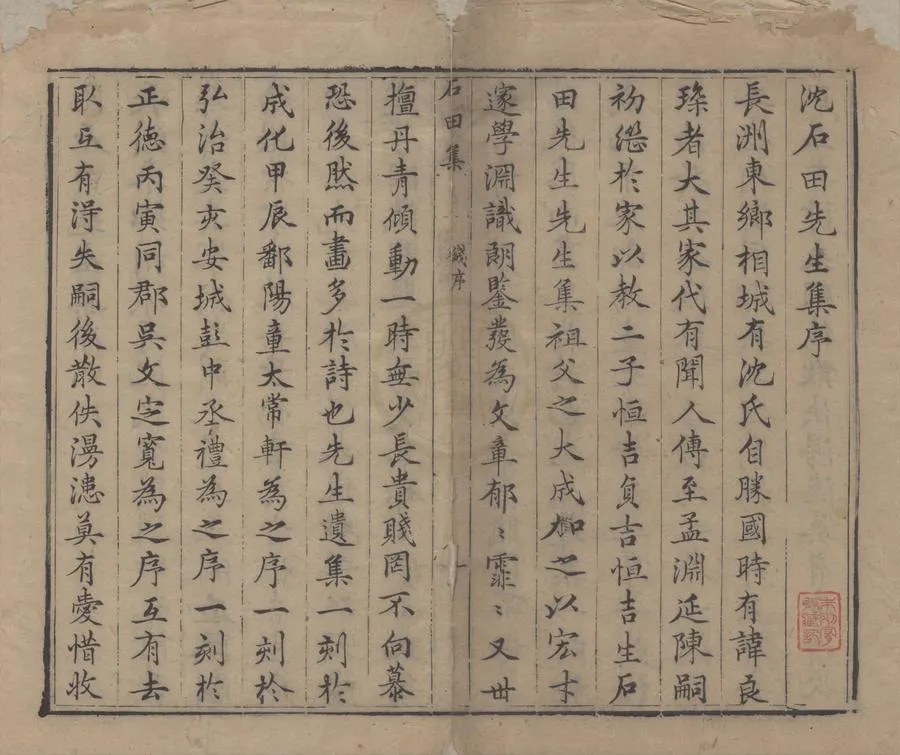 沈石田先生集序
長洲東鄉相城有沈氏自勝國時有諱良
琛者大其家代有聞人傳至孟淵延陳嗣
初繼於家以教二子恒吉貞吉恒吉生石
田先生先生集祖父之大成加之以宏才
邃學淵識朗鑒發為文章郁〻霏〻又毌
擅丹青傾動一時無少長貴賤罔不向慕
石田集 錢序
恐後然而畫多於詩也先生遺集一刻於
成化甲辰鄱陽童太常軒為之序一刻於
弘治癸亥安城彭中丞禮為之序一刻於
正德丙寅同郡吳文定寬為之序互有去
取互有得失嗣後散佚漫漶莫有愛惜收